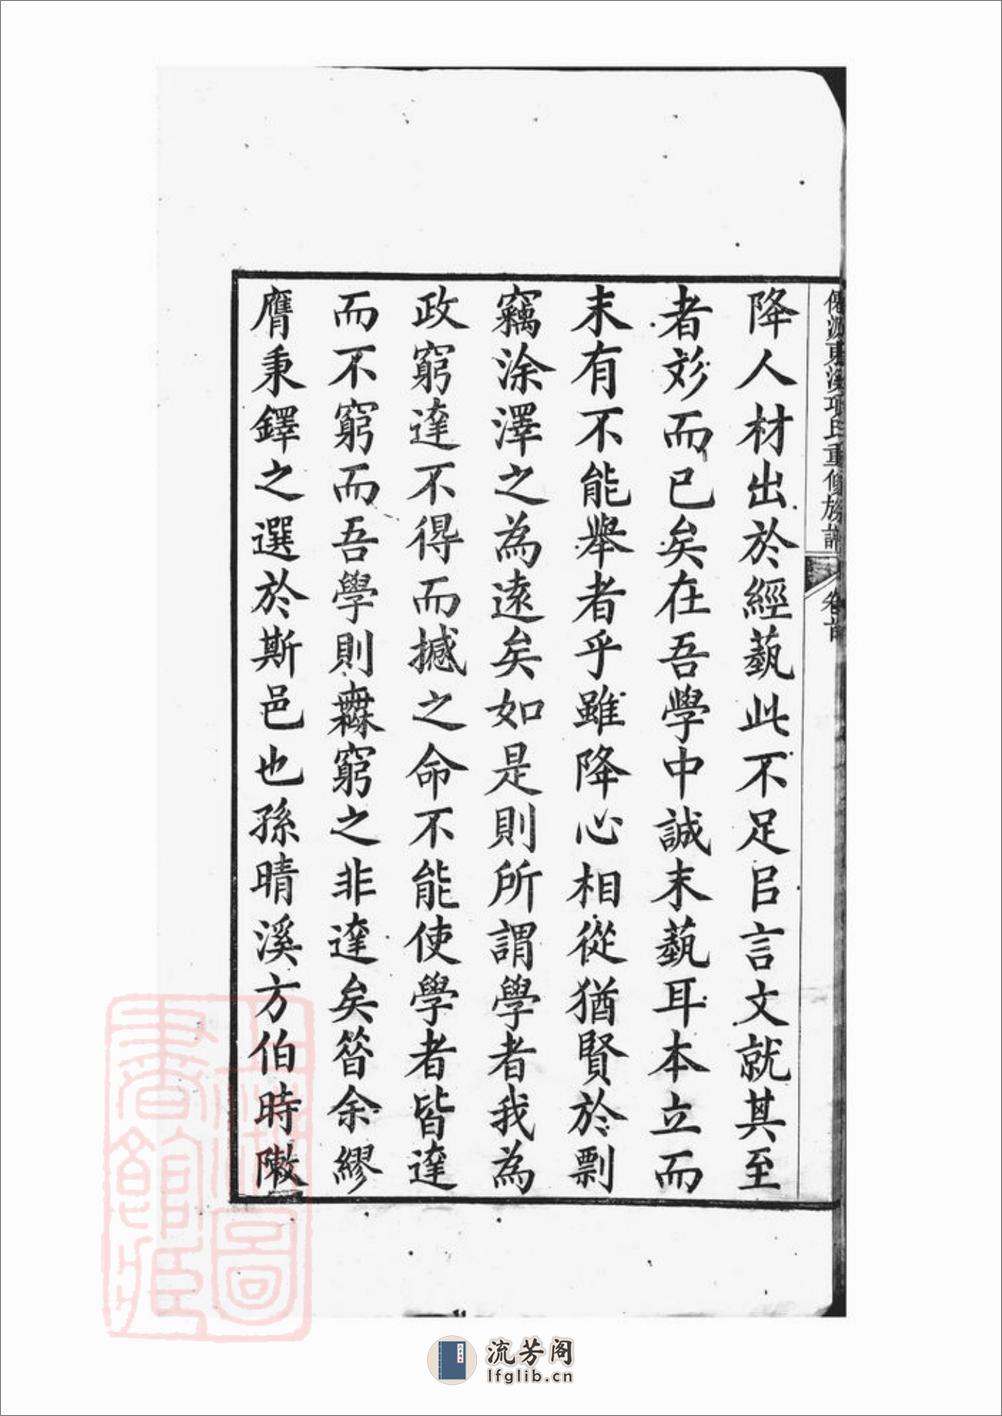 降人材出於經藝此不足㠯言文就其至
者妙而已矣在吾學中誠末藝耳本立而
末有不能舉者乎雖降心相從猶賢於剽
竊涂澤之為遠矣如是則所謂學者我為
政窮達不得而撼之命不能使學者皆達
而不窮而吾學則無窮之非達矣簮余繆
膺秉鐸之選於斯邑也孫晴溪方伯時
東溪項氏重修族譜
卷首
上海圖書館藏
流芳阁
lfglib.cn